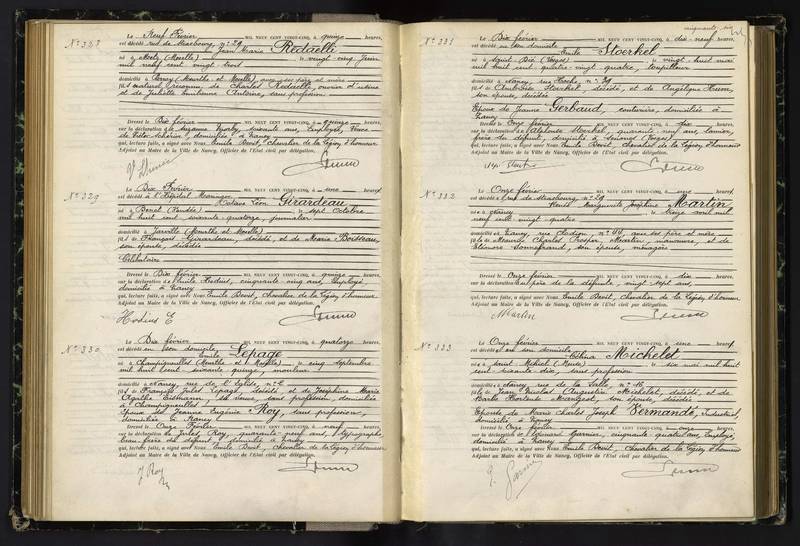 N° 328
Le Neuf Février MIL NEUF CENT VINGT-CINQ, à quinze heures,
est décédé rue de Strasbourg, n° 29
Jean Marie Redaelli
né à (Moselle) le vingt-cinq Juin
mil neuf cent vingt trois
domicilié à Nancy (Meurthe et Moselle) avec ses père et mère
fils naturel reconnu de Charles Redaelli, ouvrier d'usine
et de Juliette Emilienne Antoine, sans profession
Dressé le Dix février MIL NEUF CENT VINGT-CINQ, à quinze heures,
sur la déclaration de Suzanne soixante ans, Employée, Veuve
de Victor domiciliée à Nancy
qui, lecture faite, a signé avec Nous Emile Devit, Chevalier de la Légion d'honneur
Adjoint au Maire de la Ville de Nancy, Officier de l'Etat civil par délégation.
N° 329
Le Dix Février MIL NEUF CENT VINGT-CINQ, à une heure
est décédé à l'Hôpital
Léon Girardeau
né à Benet (Vendée) le sept Octobre
mil huit cent soixante quatorze, journalier
domicilié à Jarville (Meurthe et Moselle)
fils de François Girardeau, décédé, et de Marie Boisseau,
son épouse, décédée
Célibataire
Dressé le Dix février MIL NEUF CENT VINGT-CINQ, à quinze heures,
sur la déclaration de Emile Hodius, cinquante cinq ans, Employé,
domicilié à Nancy
qui, lecture faite, a signé avec Nous Emile Devit, Chevalier de la Légion d'honneur
Adjoint au Maire de la Ville de Nancy, Officier de l'Etat civil par délégation.
Hodius E
N° 330
Le Dix février MIL NEUF CENT VINGT-CINQ, à quatorze heures,
est décédé en son domicile,
Emile Lepage
né à Champigneulles (Meurthe et Moselle) le cinq septembre
mil huit cent soixante quinze, mouleur
domicilié à Nancy, rue de l'Eglise, n° 2
fils de François Jules Lepage, décédé et de Joséphine Marie
Agathe sa veuve, sans profession domiciliée
à Champigneulles
Epoux de Jeanne Eugénie Roy, sans profession,
domiciliée à Nancy
Dressé le Onze Février MIL NEUF CENT VINGT-CINQ, à neuf heures,
sur la déclaration de Jules Roy, quarante neuf ans, typographe,
beau frère du défunt, domicilié à Nancy
qui, lecture faite, a signé avec Nous Emile Devit, Chevalier de la Légion d'honneur
Adjoint au Maire de la Ville de Nancy, Officier de l'Etat civil par délégation.
J Roy
cinquante six
N° 331
Le Dix février MIL NEUF CENT VINGT-CINQ, à dix-neuf heures
est décédé en son domicile
Emile Stoerkel
né à Saint-Dié (Vosges) le vingt-huit mai
mil huit cent quatre-vingt-quatre,
domicilié à Nancy, rue n° 39
fils de Ambroise Stoerkel, décédé, et de Angélique
son épouse, décédée
Epoux de Jeanne Gerbaud, couturière, domiciliée à
Nancy
Dressé le Onze février MIL NEUF CENT VINGT-CINQ, à dix heures,
sur la déclaration de Alphonse Stoerkel, quarante neuf ans,
frère du défunt, domicilié à (Vosges)
qui, lecture faite, a signé avec Nous Emile Devit, Chevalier de la Légion d'honneur
Adjoint au Maire de la Ville de Nancy, Officier de l'Etat civil par délégation.
N° 332
Le Onze février MIL NEUF CENT VINGT-CINQ, à une heure
est décédé rue de Strasbourg n° 29
Marguerite Joséphine Martin
née à Nancy le treize avril mil
neuf cent vingt quatre
domiciliée à Nancy, rue Clodion n° 44, avec ses père et mère
fille de Maurice Charles Prosper Martin, manœuvre, et de
Eléonore son épouse, ménagère
Dressé le Onze février MIL NEUF CENT VINGT-CINQ, à dix heures,
sur la déclaration du père de la défunte, vingt sept ans,
qui, lecture faite, a signé avec Nous Emile Devit, Chevalier de la Légion d'honneur
Adjoint au Maire de la Ville de Nancy, Officier de l'Etat civil par délégation.
Martin
N° 333
Le Onze février MIL NEUF CENT VINGT-CINQ, à une heure
est décédée en son domicile
Célina Michelet
née à Saint-Mihiel (Meuse) le six mai mil huit
cent soixante dix, sans profession
domiciliée à Nancy rue de la Salle n° 16
fille de Jean Nicolas Augustin Michelet, décédé, et de
Hortense son épouse, décédée
Epouse de Marie Charles Joseph Permandé, Industriel,
domicilié à Nancy
Dressé le Onze février MIL NEUF CENT VINGT-CINQ, à onze heures,
sur la déclaration de Edouard Garnier, cinquante quatre ans, Employé,
domicilié à Nancy
qui, lecture faite, a signé avec Nous Emile Devit, Chevalier de la Légion d'honneur
Adjoint au Maire de la Ville de Nancy, Officier de l'Etat civil par délégation.
Garnier